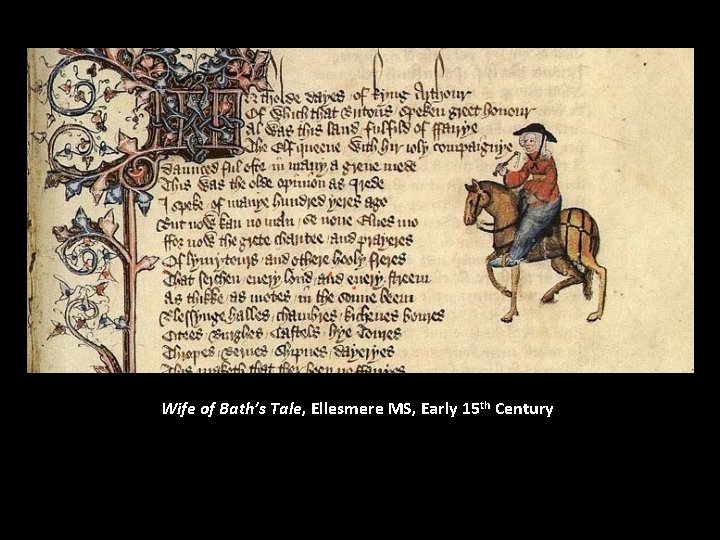 In tholde dayes of kyng Arthour
Of which that Britons speken greet honour
Al was this land fulfild of ffairye
The Elf queene with hir ioly compaignye
Daunced ful ofte in many a grene mede
This was the olde opinion as I rede
I speke of manye hundred yeres ago
But now kan no man se none Elues mo
ffor now the grete charitee and prayeres
Of lymytours and othere hooly freres
That serchen euery lond and euery streem
As thikke as motes in the sonne beem
Blessynge halles chambres kichenes boures
Citees Burghes Castels hye Toures
Thropes Bernes Shipnes Dayeryes
This maketh that ther been no ffairyes
Wife of Bath’s Tale, Ellesmere MS, Early 15th Century